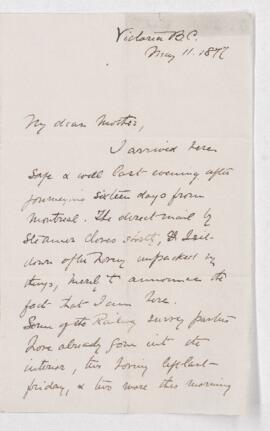 Victoria B.C.
May 11. 1877
My dear Mother,
I arrived here
safe & well last evening after
journeying sixteen days from
Montreal. The direct mail by
Steamer closes shortly, & I sit
down after having unpacked my
things, merely to announce the
fact that I am here.
Some of the Railway survey parties
have already gone into the
interior, two having left last
friday, & two more this morning